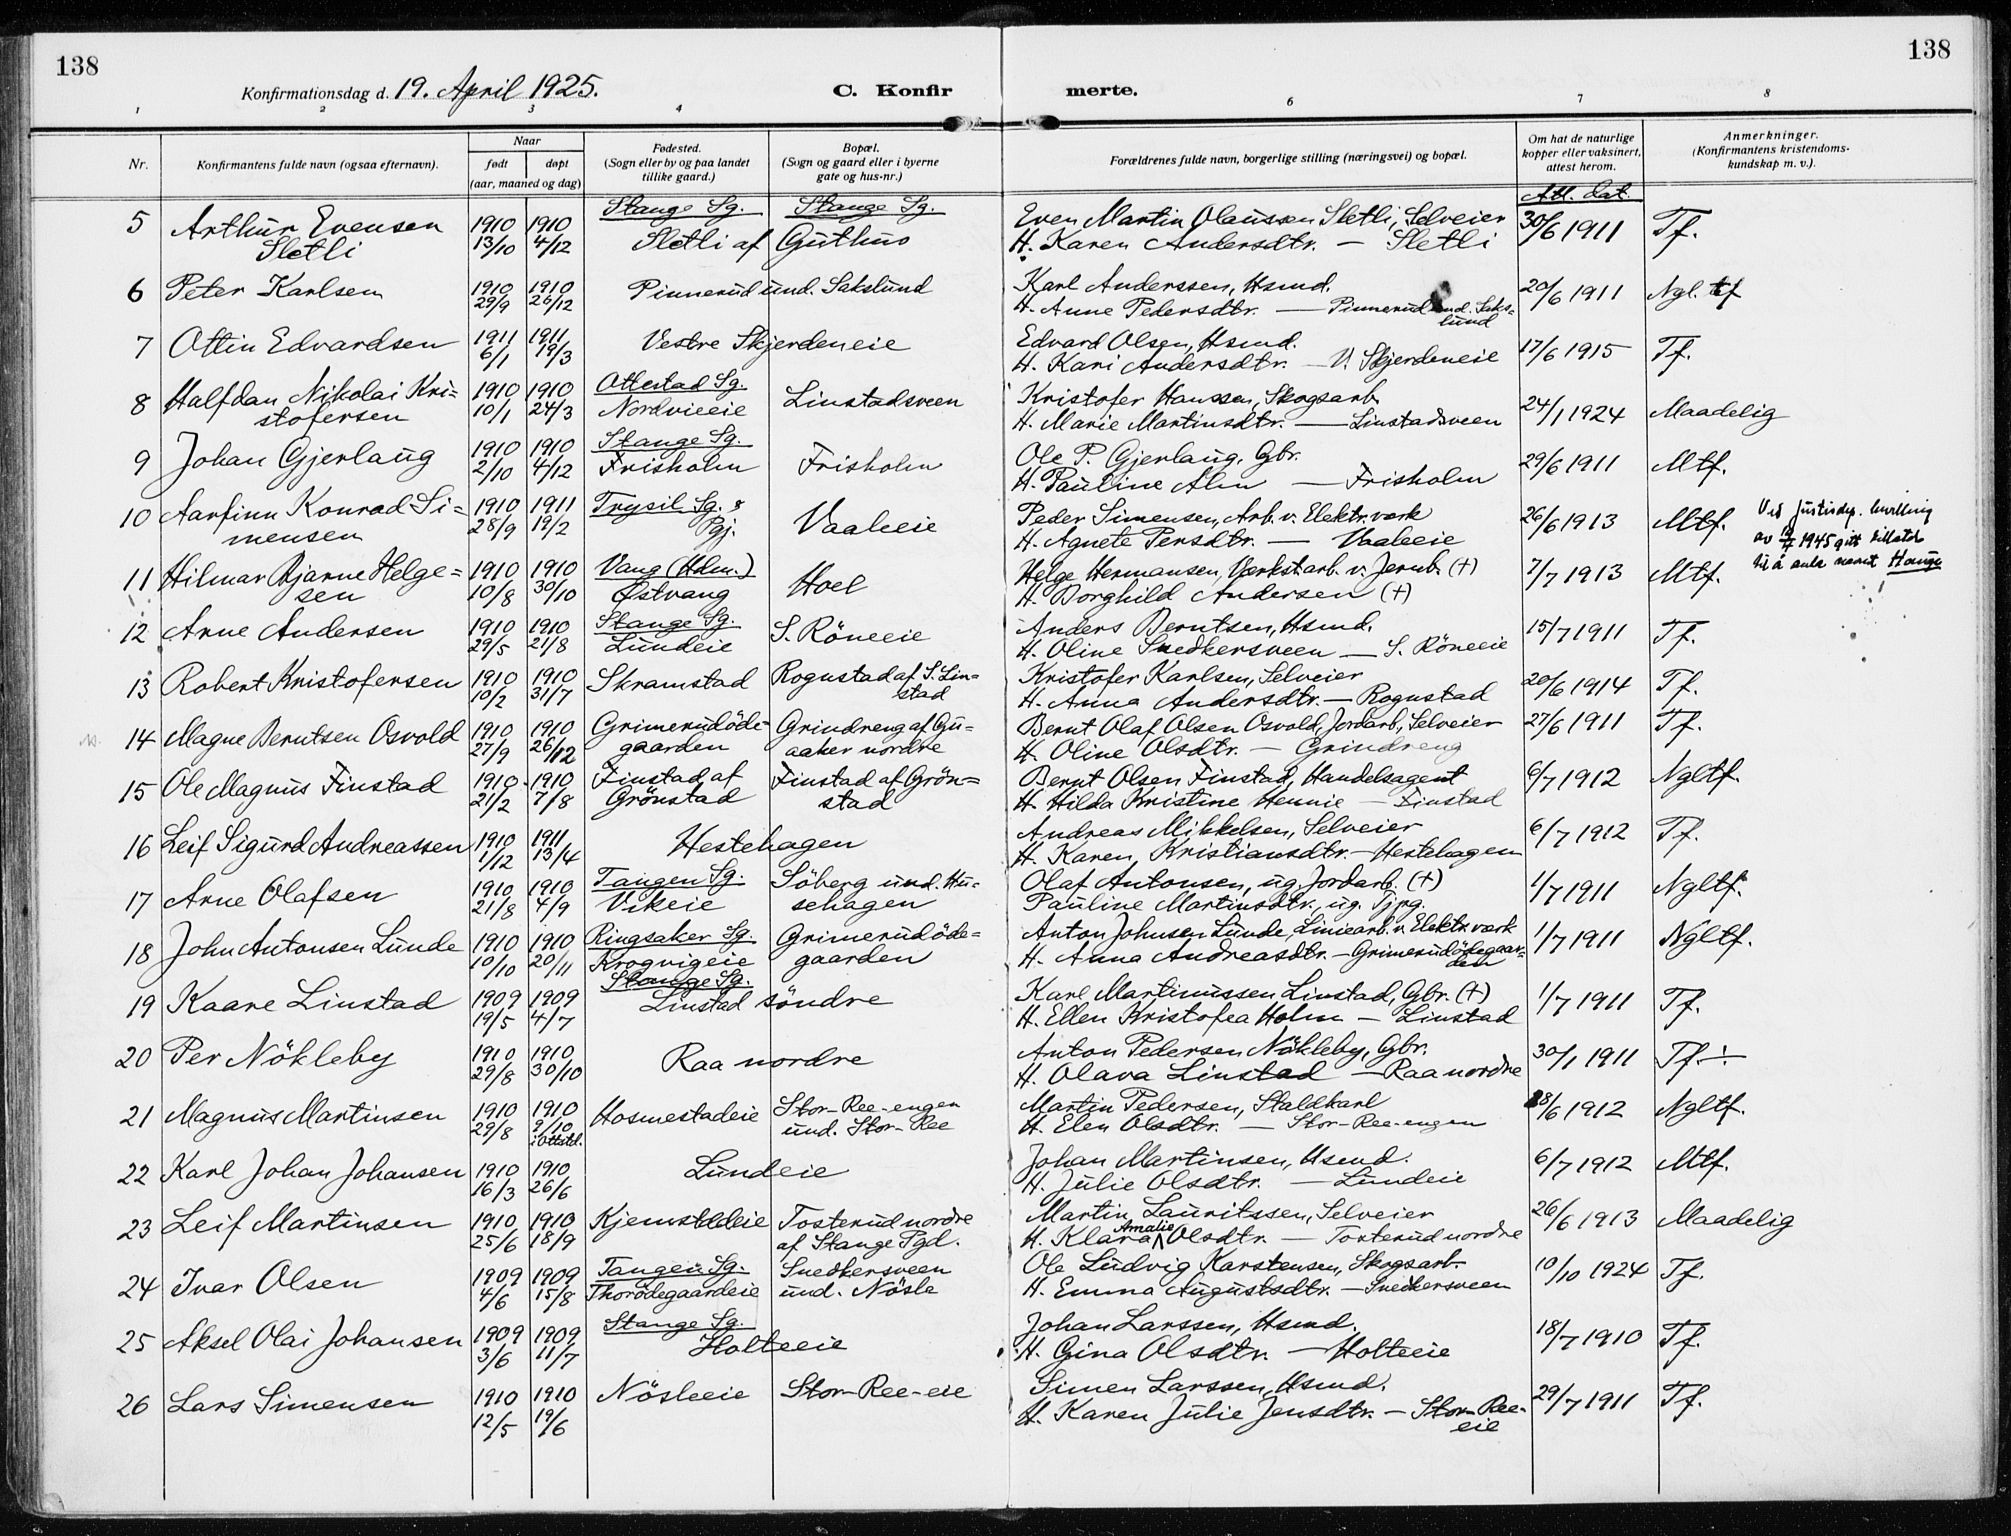 138
138
Konfirmationsdag d. 19. April 1925.
C. Konfir
merte.
1 2 3 4 6 7 8
Nr.
Konfirmantens fulde navn (ogsaa efternavn).
Naar
født
døpt
(aar, maaned og dag)
Fødested.
(Sogn eller by og paa landet
tillike gaard.)
Bopæl.
(Sogn og gaard eller i byerne
gate og hus-nr.)
Forældrenes fulde navn, borgerlige stilling (næringsvei) og bopæl.
Om hat de naturlige
kopper eller vaksinert,
attest herom.
Anmerkninger.
(Konfirmantens kristendoms-
kundskap m. v.).
Att. dat.
Stange Sg. Stange Sg.
5 Arthur Evensen 1910 1910 Even Martin Olaussen Sletli, Selveier 30/6 1911 Tf.
Sletli 13/10 4/12 Sletli af Guthus H. Karen Andersdtr. — Sletli
6 Peter Karlsen 1910 1910 Pinnerud und. Sakslund Karl Anderssen, Hsmd. 20/6 1911 Ngl. tf
29/9 26/12 H. Anne Pedersdtr. — Pinnerud und. Saks=
lund
7 Ottin Edvardsen 1911 1911 Vestre Skjerdeneie Edvard Olsen, Hsmd. 17/6 1915 Tf.
6/1 19/3 H. Kari Andersdtr. — V. Skjerdeneie
8 Halfdan Nikolai Kri= 1910 1910 Ottestad Sg. Linstadsveen Kristofer Hanssen, Skogsarb. 24/1 1924 Maadelig
stofersen 10/1 24/3 Nordvieeie H. Marie Martinsdtr. — Linstadsveen
9 Johan Gjerlaug 1910 1910 Stange Sg. Ole P. Gjerlaug, Gbr. 29/6 1911 Mtf.
2/10 4/12 Frisholm Frisholm H. Pauline Alm — Frisholm
10 Aarfinn Konrad Si= 1910 1911 Trysil Sg. & Vaaleeie Peder Simensen, Arb. v. Elektr. værk 26/6 1913 Mtf.
mensen 28/9 19/2 Pgj. H. Agnete Persdtr. — Vaaleeie
Ved Justisdep. bevilling
av 1945 gitt tillatelse
til å anta navnet Hauge
11 Hilmar Bjarne Helge= 1910 1910 Vang (Hdm.) Hoel Helge Hermansen, Værkst.arb. v. Jernb. (+) 7/7 1913 Mtf.
sen 10/8 30/10 Østvang H. Borghild Andersen (+)
12 Arne Andersen 1910 1910 Stange Sg. S. Röneeie Anders Berntsen, Hsmd. 15/7 1911 Tf.
29/5 21/8 Lundeie H. Oline Snedkersveen — S. Röneeie
13 Robert Kristofersen 1910 1910 Skramstad Rogustad af S. Lin= Kristofer Karlsen, Selveier 20/6 1914 Tf.
10/2 31/7 stad H. Anna Andersdtr. — Rogustad
14 Magne Berntsen Osvold 1910 1910 Grimerudöde= Grindreng af Gu= Bernt Olaf Olsen Osvold, Jordarb., Selveier 27/6 1911 Tf.
27/9 26/12 gaarden aaker nordre H. Oline Olsdtr. — Grindreng
15 Ole Magnus Finstad 1910 1910 Finstad af Finstad af Grön= Bernt Olsen Finstad, Handelsagent 6/7 1912 Ngltf.
21/2 7/8 Grönstad stad H. Hilda Kristine Hennie — Finstad
16 Leif Sigurd Andreassen 1910 1911 Hestehagen Andreas Mikkelsen, Selveier 6/7 1912 Tf.
1/12 13/4 H. Karen Kristiansdtr. — Hestehagen
17 Arne Olafsen 1910 1910 Tangen Sg. Söberg und. Hu= Olaf Antonsen, ug. Jordarb. (+) 1/7 1911 Ngltf.
21/8 4/9 Vikeie sehagen Pauline Martinsdtr., ug. Tjpg.
18 John Antonsen Lunde 1910 1910 Ringsaker Sg. Grimerudöde= Anton Johnsen Lunde, Liniearb. v. Elektr. værk 1/7 1911 Ngltf.
10/10 20/11 Krogvigeie gaarden H. Anna Andreasdtr. — Grimerudödegaar=
den
Stange Sg.
19 Kaare Linstad 1909 1909 Linstad söndre Karl Martinussen Linstad, Gbr. (+) 1/7 1911 Tf.
19/5 4/7 H. Ellen Kristofea Holm — Linstad
20 Per Nökleby 1910 1910 Raa nordre Anton Pedersen Nökleby, Gbr. 30/1 1911 Tf. ÷
29/8 30/10 H. Olava Linstad — Raa nordre
21 Magnus Martinsen 1910 1910 Hosmestadeie Stor-Ree-engen Martin Pedersen, Staldkarl 28/6 1912 Ngltf.
29/8 9/10 und. Stor-Ree H. Elen Olsdtr. — Stor-Ree-engen
i Ottstd.
22 Karl Johan Johansen 1910 1910 Lundeie Johan Martinsen, Hsmd. 6/7 1912 Mtf.
16/3 26/6 H. Julie Olsdtr. — Lundeie
23 Leif Martinsen 1910 1910 Kjemstdeie Tosterud nordre Martin Lauritssen, Selveier 26/6 1913 Maadelig
25/6 18/9 af Stange Pgd. H. Klara Amalie Olsdtr. — Tosterud nordre
24 Ivar Olsen 1909 1909 Tangen Sg. Snedkersveen Ole Ludvig Karstensen, Skogsarb. 10/10 1924 Tf.
4/6 15/8 Thorödegaardeie und. Nösle H. Emma Augustsdtr. — Snedkersveen
25 Aksel Olai Johansen 1909 1909 Stange Sg. Johan Larssen, Hsmd. 18/7 1910 Tf.
3/6 11/7 Holteeie H. Gina Olsdtr. — Holteeie
26 Lars Simensen 1910 1910 Nösleeie Stor-Ree-eie Simen Larssen, Hsmd. 29/7 1911 Tf.
12/5 19/6 H. Karen Julie Jensdtr. — Stor-Ree-
eie